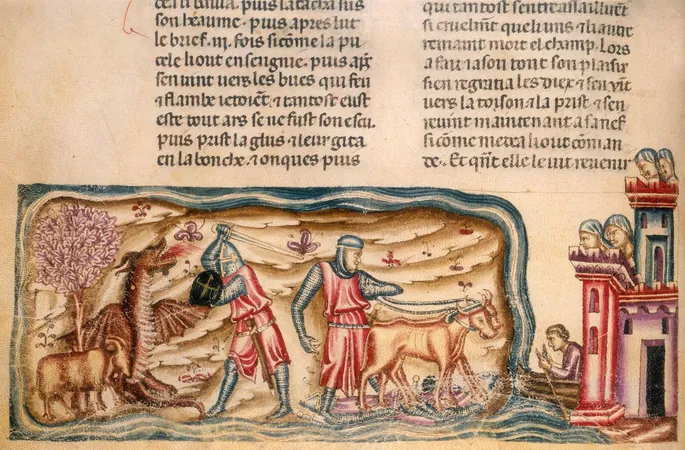 puis latacha sus
son heaume. puis apres lut
le brief .iij. fois si come la pu
cele li out enseignie. puis apr̃
sen uint uers les bues qui feu
⁊ flambe ietoient. ⁊ tantost eust
este tout ars se ne fust son escu.
puis prist la glus ⁊ leur gita
en la bouche. ⁊ onques puis
qui tantost sentre assaillirent
si cruelmt ⁊ li autre
remaint mort el champ. Lors
a fait iason tout son plaisir
si en regratia les diex ⁊ sen uīt
uers la toison ⁊ la prist ⁊ sen
reuint maintenant a sa nef
si come medea li out coman
de. Et qñt elle le uit reuenir